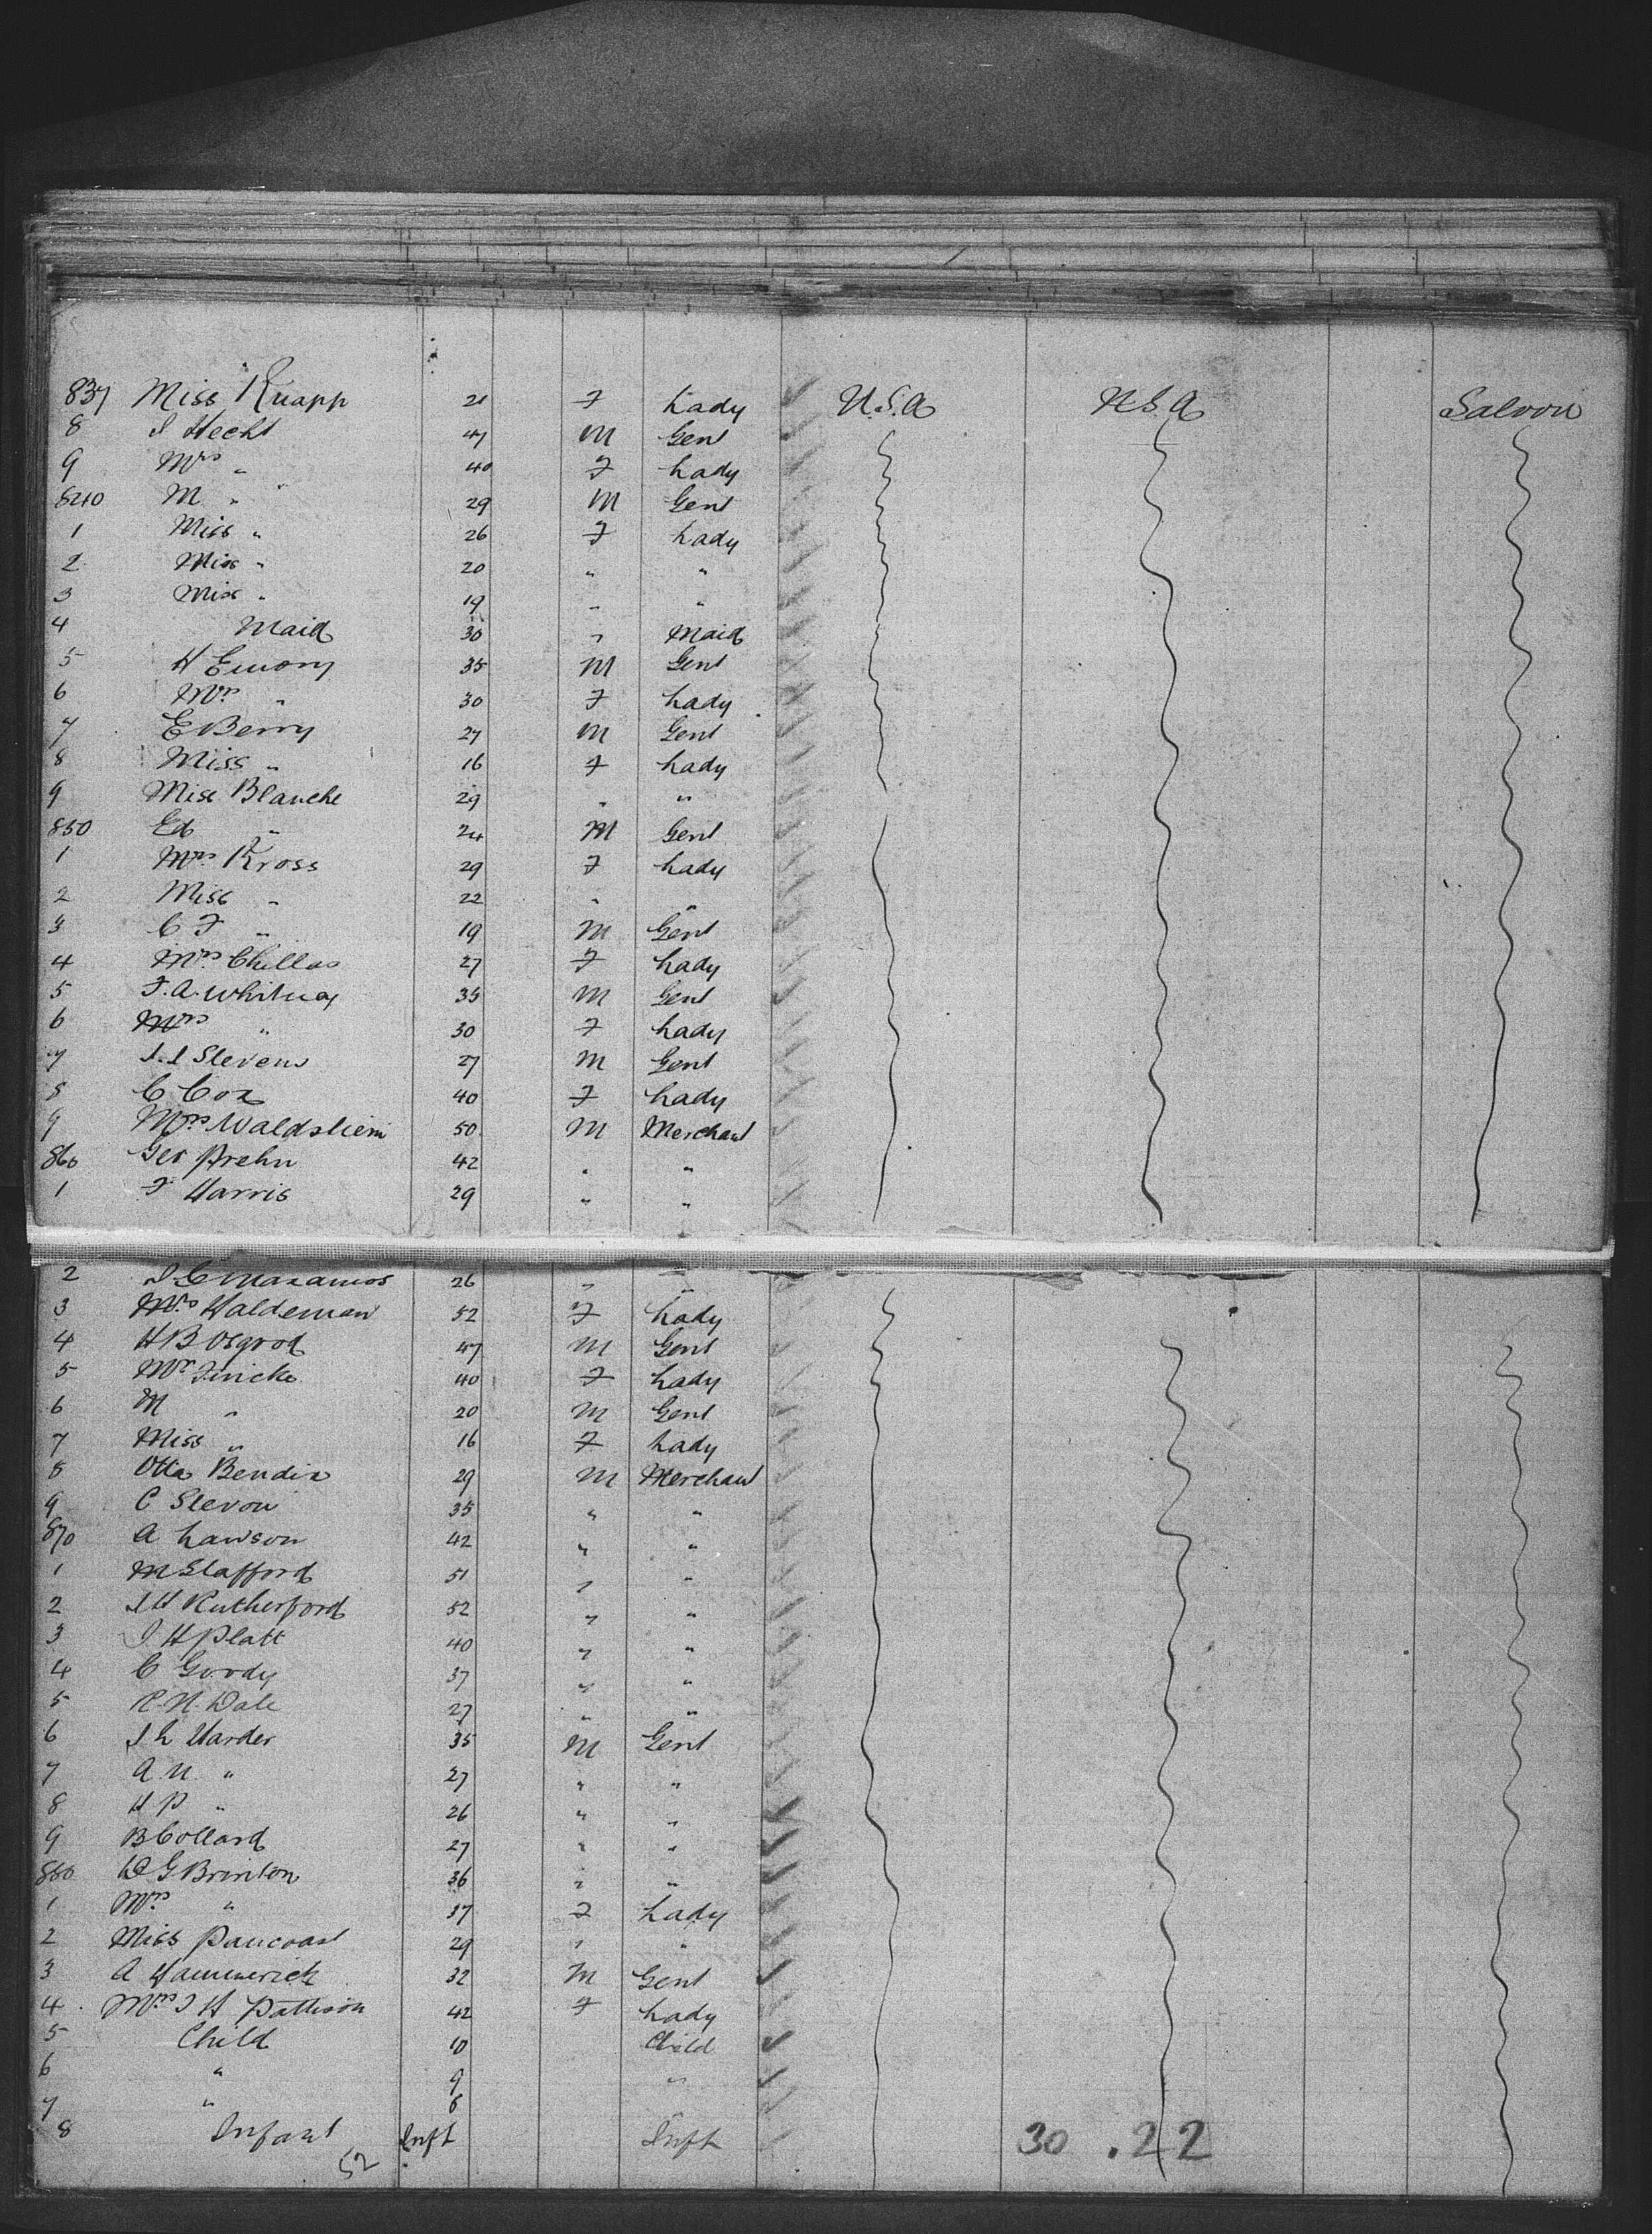 837 Miss Knapp 21 F Lady U.S.A U.S.A Saloon
8 I Hecht 47 M Gent
9 Mrs " 40 F Lady
840 M " 29 M Gent
1 Miss " 26 F Lady
2 Miss " 20 " "
3 Miss " 19 " "
4 Maid 30 " Maid
5 H Emory 35 M Gent
6 Mrs " 30 F Lady
7 E Berry 27 M Gent
8 Miss " 16 F Lady
9 Miss Blanche 29 " "
850 Ed " 24 M Gent
1 Mrs Kross 29 F Lady
2 Miss " 22 " "
3 C F " 19 M Gent
4 Mrs Chillas 27 F Lady
5 F.A. Whitney 35 M Gent
6 Mrs " 30 F Lady
7 J.I Stevens 27 M Gent
8 C Cox 40 F Lady
9 Mrs Waldstiem 50 M Merchant
860 Geo Prehn 42 " "
1 F Harris 29 " "
2 26 "
3 Mrs Haldeman 52 F Lady
4 H B Osgood 47 M Gent
5 Mrs Fincke 40 F Lady
6 M " 20 M Gent
7 Miss " 16 F Lady
8 Otto Bendix 29 M Merchant
9 C Slevon 35 " "
870 A Lawson 42 " "
1 M Stafford 51 " "
2 J H Rutherford 52 " "
3 J H Platt 40 " "
4 C Goody 37 " "
5 R.N. Dale 27 " "
6 J L Harder 35 M Gent
7 A.N. " 27 " "
8 H P " 26 " "
9 B Collard 27 " "
880 D G Brinton 36 " "
1 Mrs " 37 F Lady
2 Miss Pancoast 29 " "
3 A Hammerick 32 M Gent
4 Mrs J H Pattison 42 F Lady
5 Child 10 Child
6 " 9 "
7 " 6
8 Infant Inft Inft
52
30 . 22